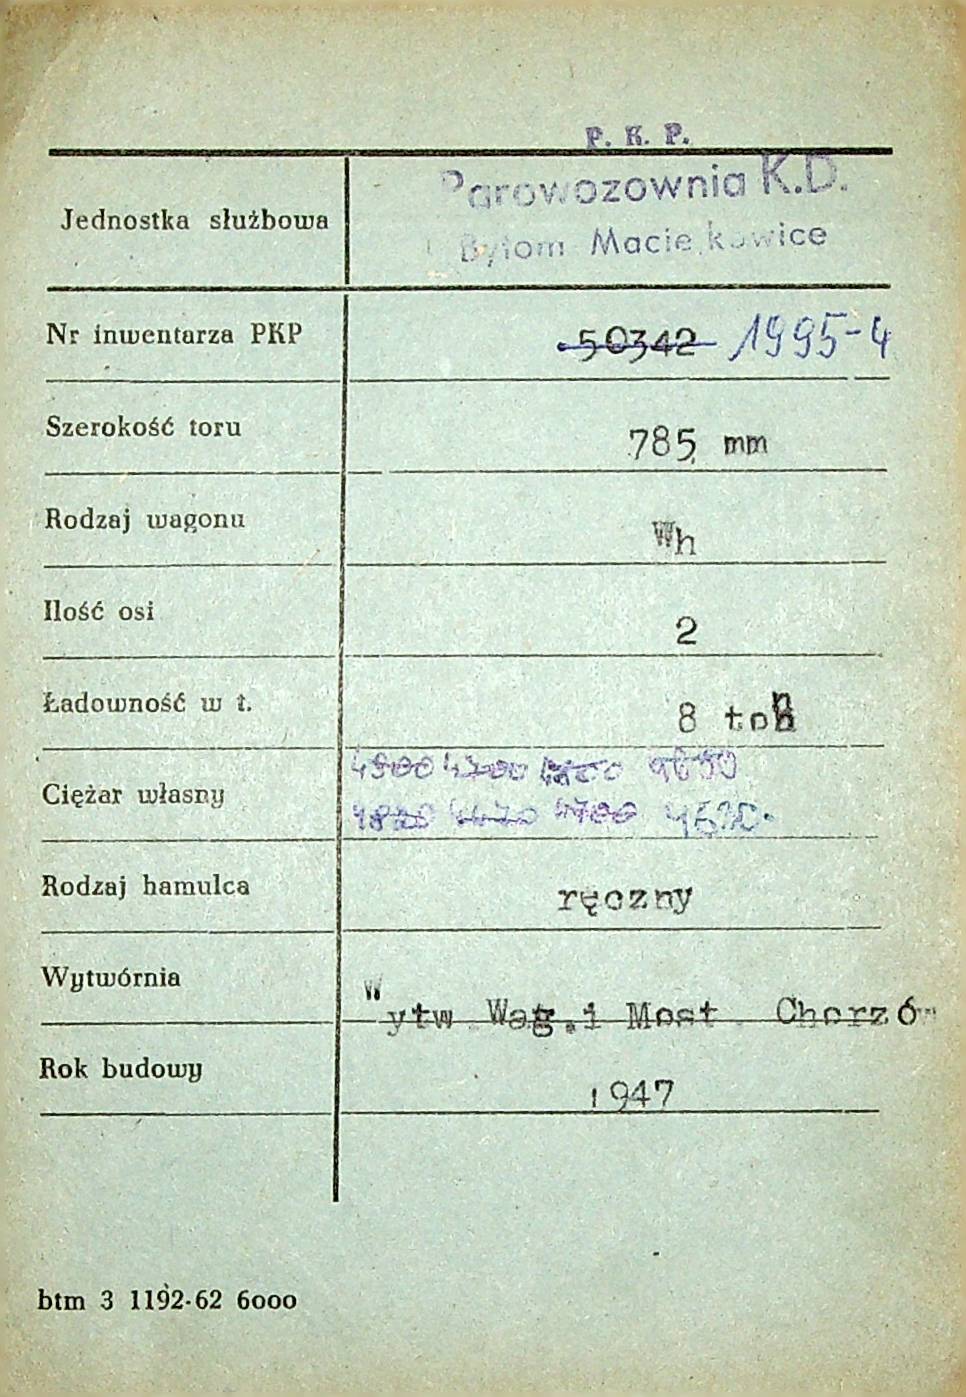 P. K. P.
Jednostka służbowa Parowozownia K.D.
Bytom Maciejkowice
Nr inwentarza PKP 50342 1995-4
Szerokość toru 785 mm
Rodzaj wagonu Wh
Ilość osi 2
Ładowność w t. 8 ton
4900 4200
Ciężar własny
4700
Rodzaj hamulca ręczny
Wytwórnia Wytw Wag.i Most Chorzów
Rok budowy 1947
btm 3 1192-62 6000